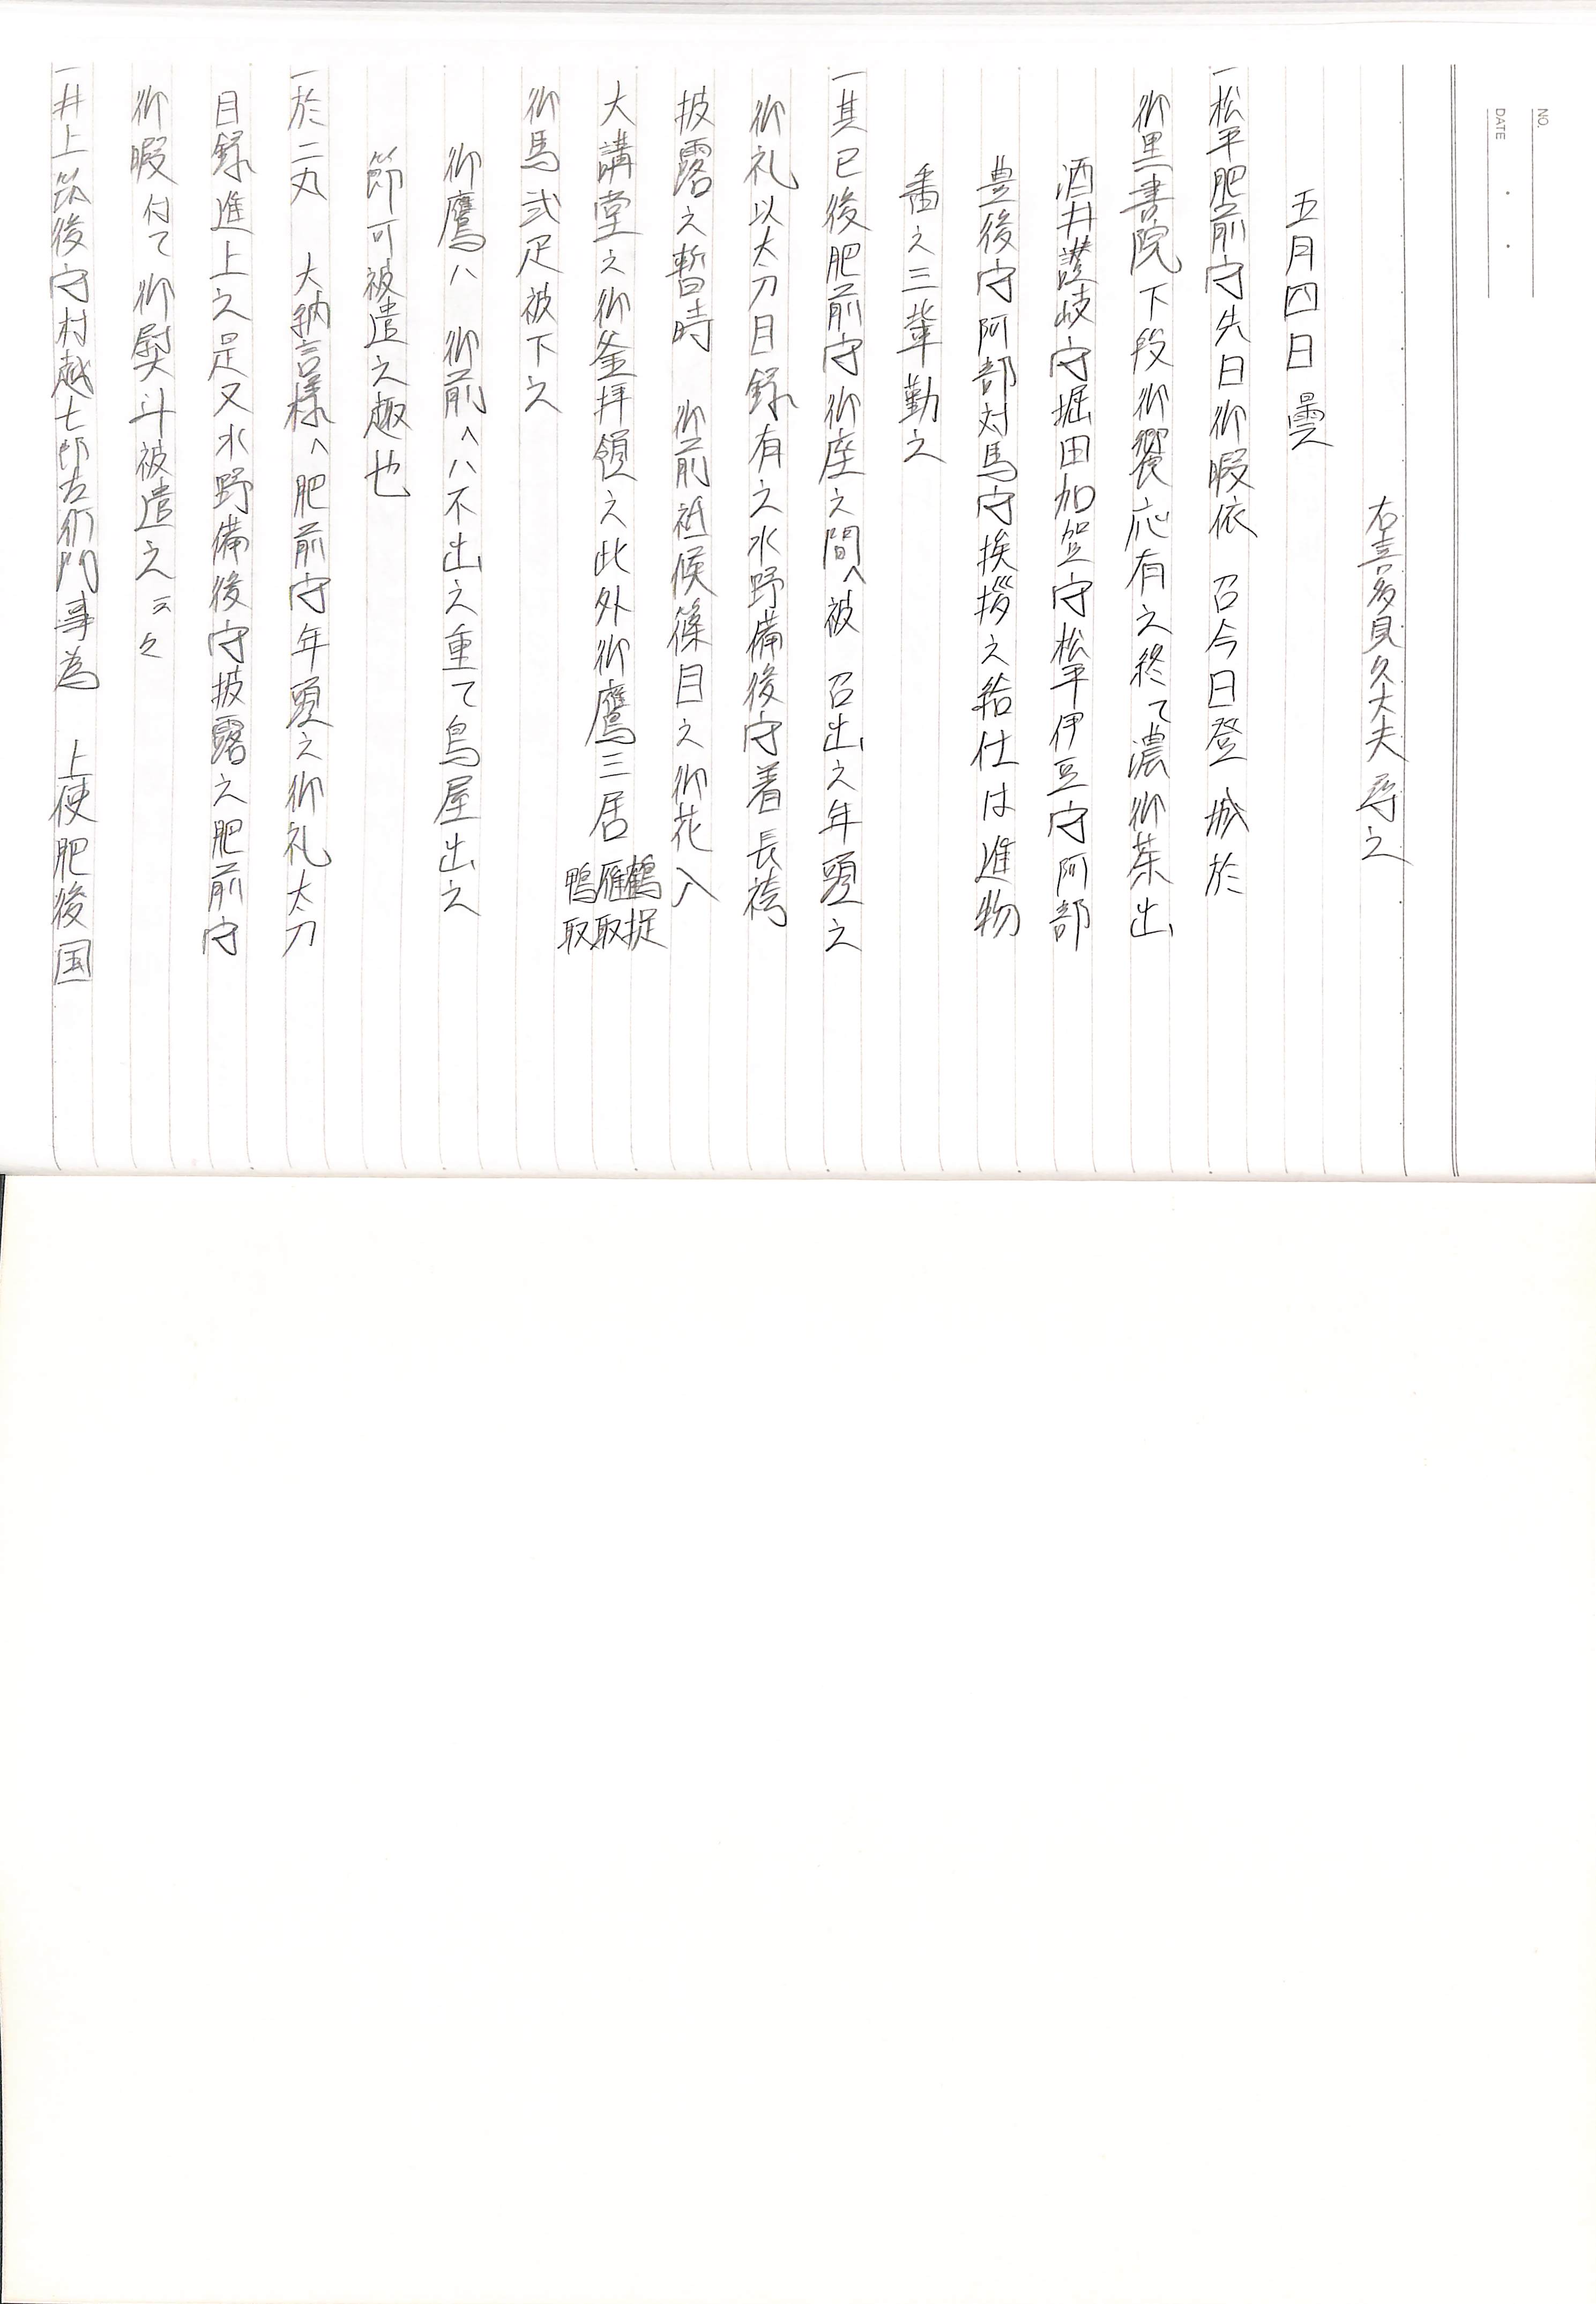 NO.
DATE
右喜多見久大夫尋之
五月四日 曇
一松平肥前守先日御暇依 召今日登 城於
御黒書院下段御饗応有之終て濃御茶出
酒井讃岐守堀田加賀守松平伊豆守阿部
豊後守阿部対馬守挨拶之給仕は進物
番之三輩勤之
一其已後肥前守御座之間へ被 召出之年頭之
御礼以太刀目録有之水野備後守着長袴
披露之暫時 御前祗候篠目之御花入
大講堂之御釜拝領之此外御鷹三居 鶴捉 雁取 鴨取
御馬弐疋被下之
御鷹ハ 御前へハ不出之重て鳥屋出之
節可被遣之趣也
一於二丸 大納言様へ肥前守年頭之御礼太刀
目録進上之是又水野備後守披露之肥前守
御暇付て御熨斗被遣之云々
一井上筑後守村越七郎左衛門事為 上使肥後国